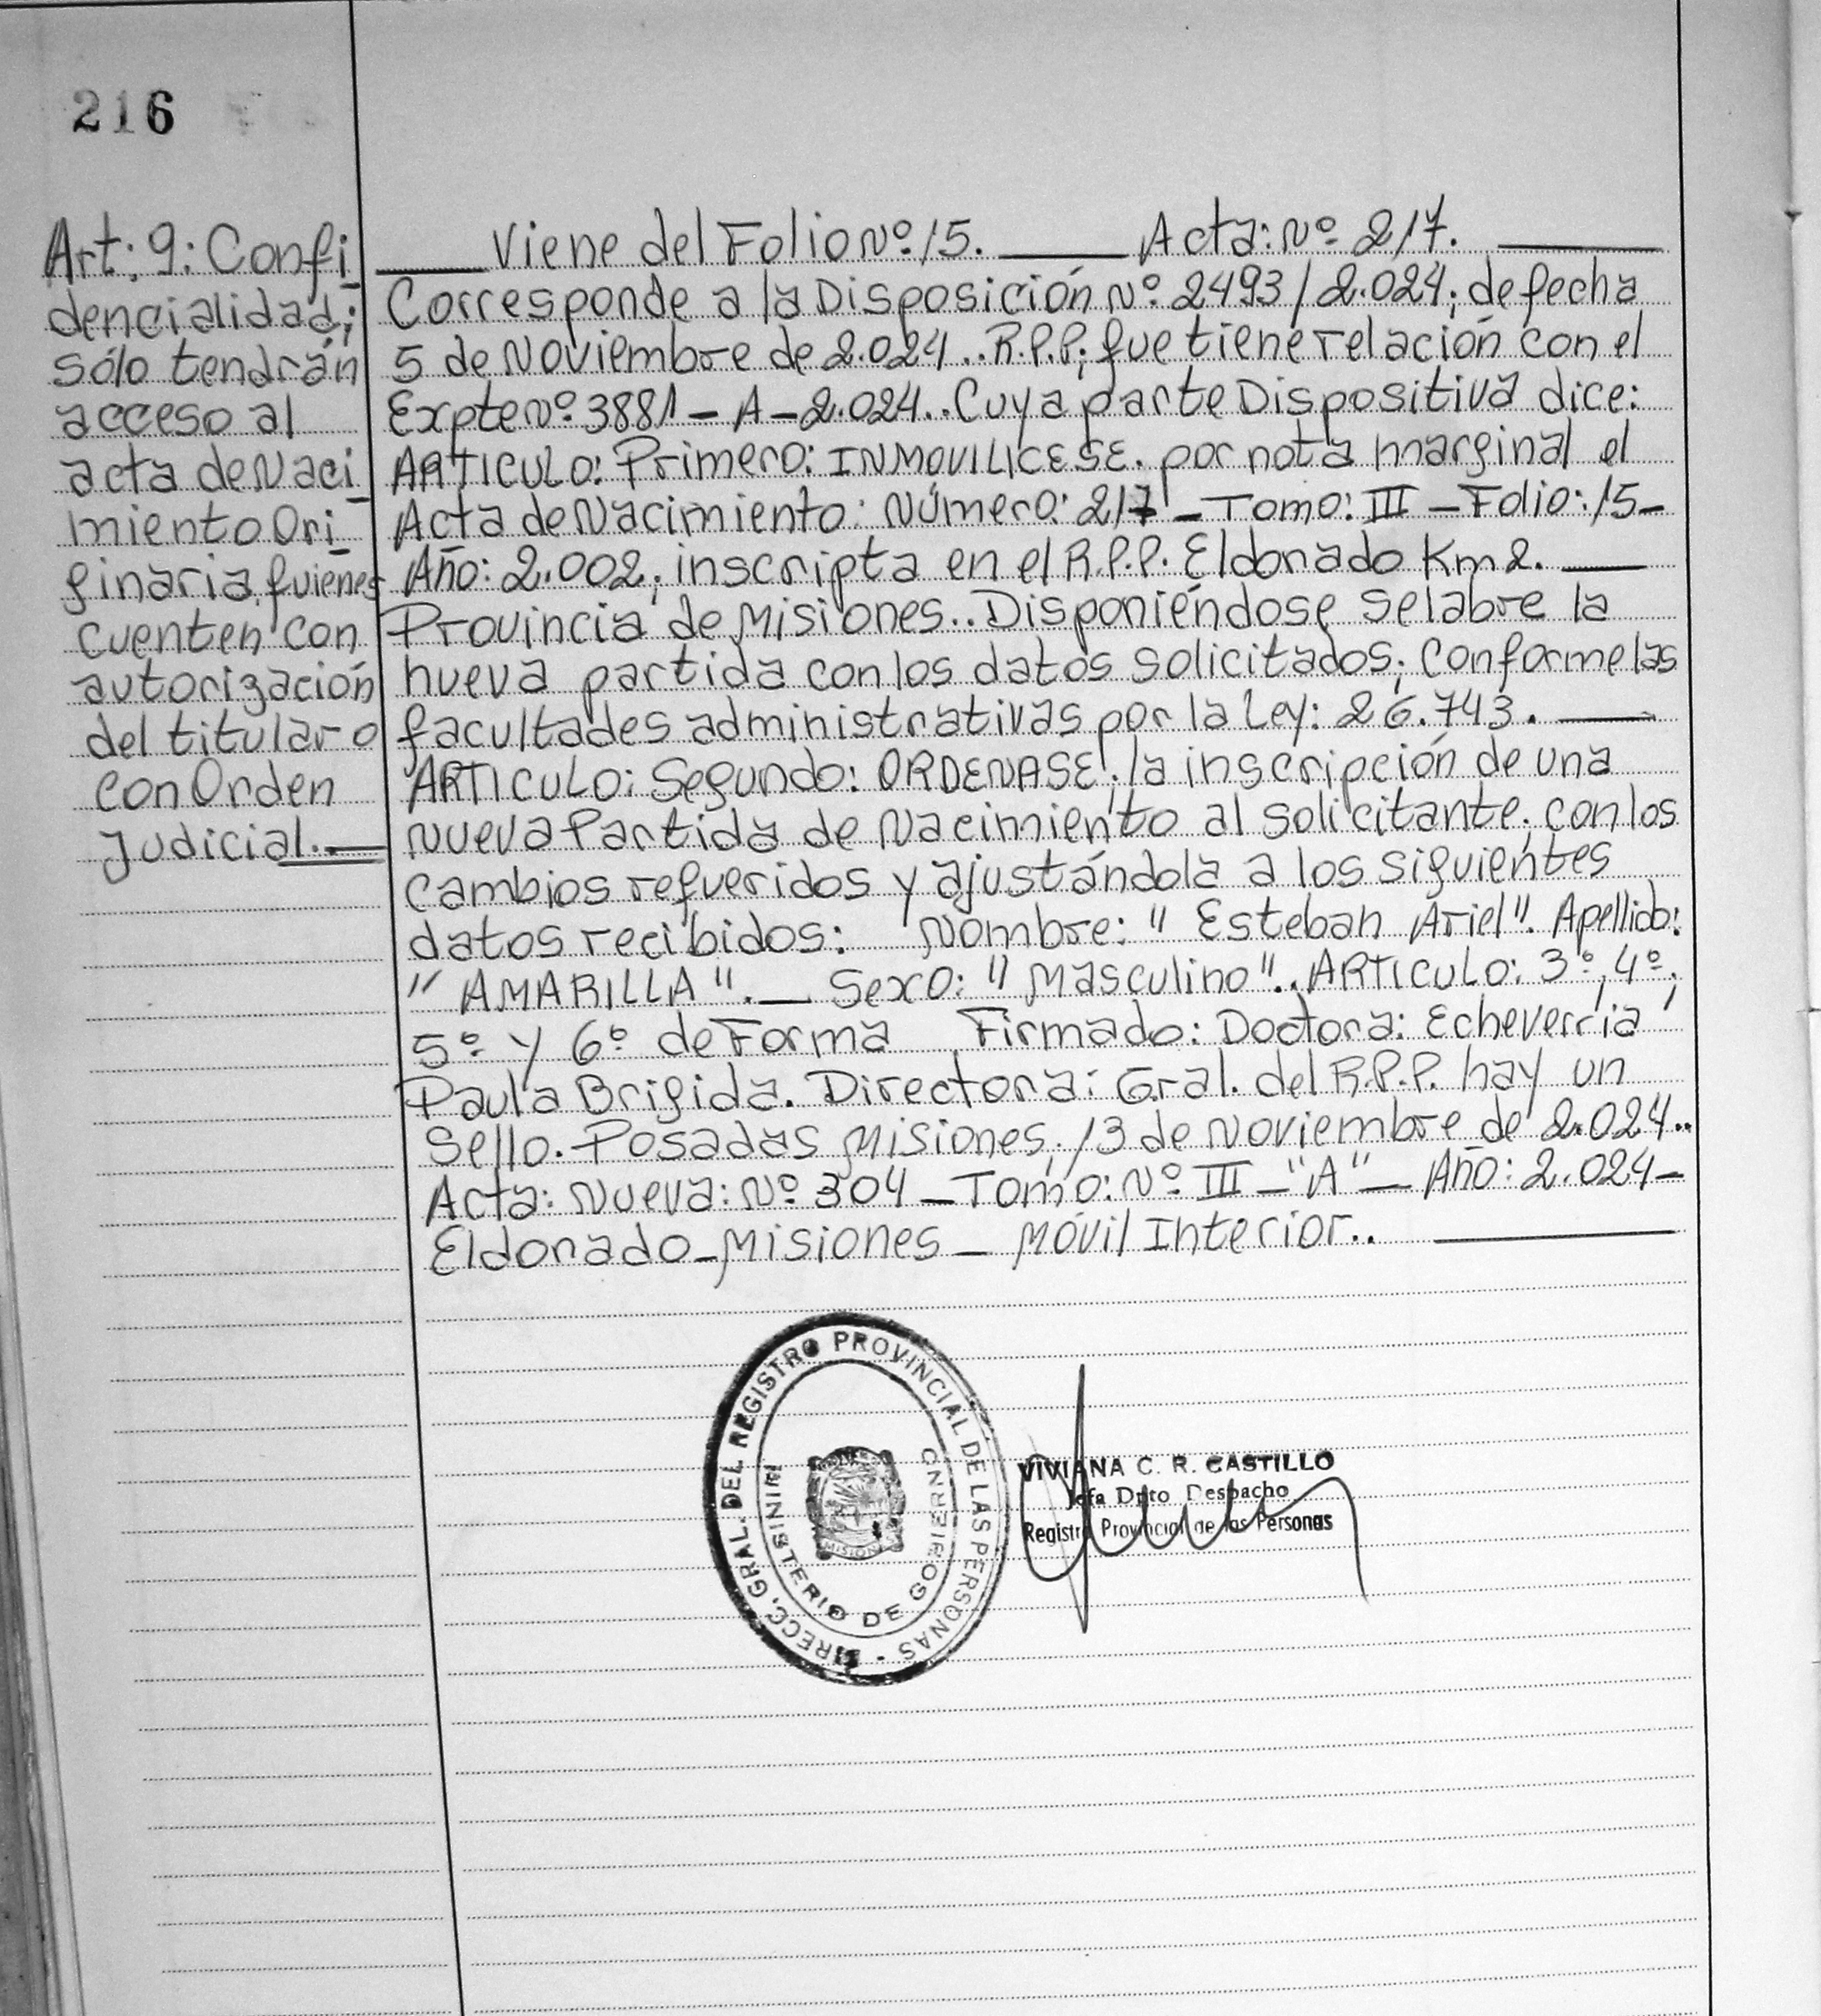 216
Art: 9: Confi_
dencialidad;
sólo tendrán
acceso al
acta de Naci_
miento Ori_
ginaria, quienes
cuenten con
autorización
del titular o
con Orden
Judicial._
____ Viene del Folio Nº 15. ____ Acta: Nº 217. ____
Corresponde a la Disposición Nº 2493/2.024; de fecha
5 de Noviembre de 2.024.. R.P.P; que tiene relación con el
Expte Nº 3881_A_2.024.. Cuya parte Dispositiva dice:
ARTICULO: Primero: INMOVILICESE. por nota marginal el
Acta de Nacimiento: Número: 217 _ Tomo: III _ Folio: 15_
Año: 2.002; inscripta en el R.P.P. Eldorado Km 2. ____
Provincia de Misiones.. Disponiéndose se labre la
nueva partida con los datos solicitados; Conforme las
facultades administrativas por la Ley: 26.743. ____
ARTICULO: Segundo: ORDENASE; la inscripción de una
Nueva Partida de Nacimiento al solicitante; con los
Cambios requeridos y ajustándola a los siguientes
datos recibidos: Nombre: " Esteban Ariel". Apellido:
" AMARILLA". __ Sexo: " Masculino".. ARTICULO: 3º, 4º,
5º y 6º de Forma Firmado: Doctora: Echeverría
Paula Brigida. Directora: Gral. del R.P.P. hay un
Sello. Posadas Misiones, 13 de Noviembre de 2.024..
Acta: Nueva: Nº 304 _ Tomo: Nº III _ "A" _ Año: 2.024_
Eldorado_Misiones _ Móvil Interior.. ____
DIRECC. GRAL. DEL REGISTRO PROVINCIAL DE LAS PERSONAS -
MINISTERIO DE GOBIERNO
MISIONES
VIVIANA C. R. CASTILLO
Jefa Dpto Despacho
Registro Provincial de las Personas